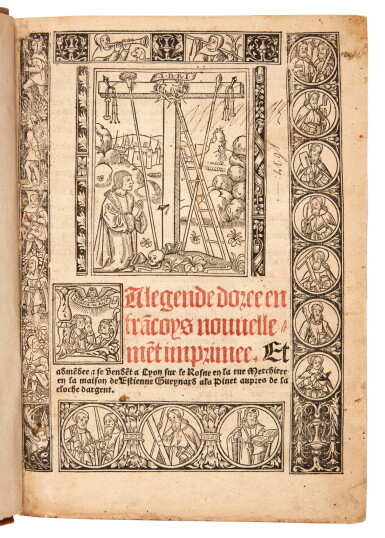 I·N·R·I
La legende doree en
frãcoys nouuelle
mẽt imprimee. Et
admẽder : se vendẽt a Lyon sur le Rosne en la rue Merchiere
en la maison de Estienne Gueynard als Pinet aupres de la
cloche dargent.